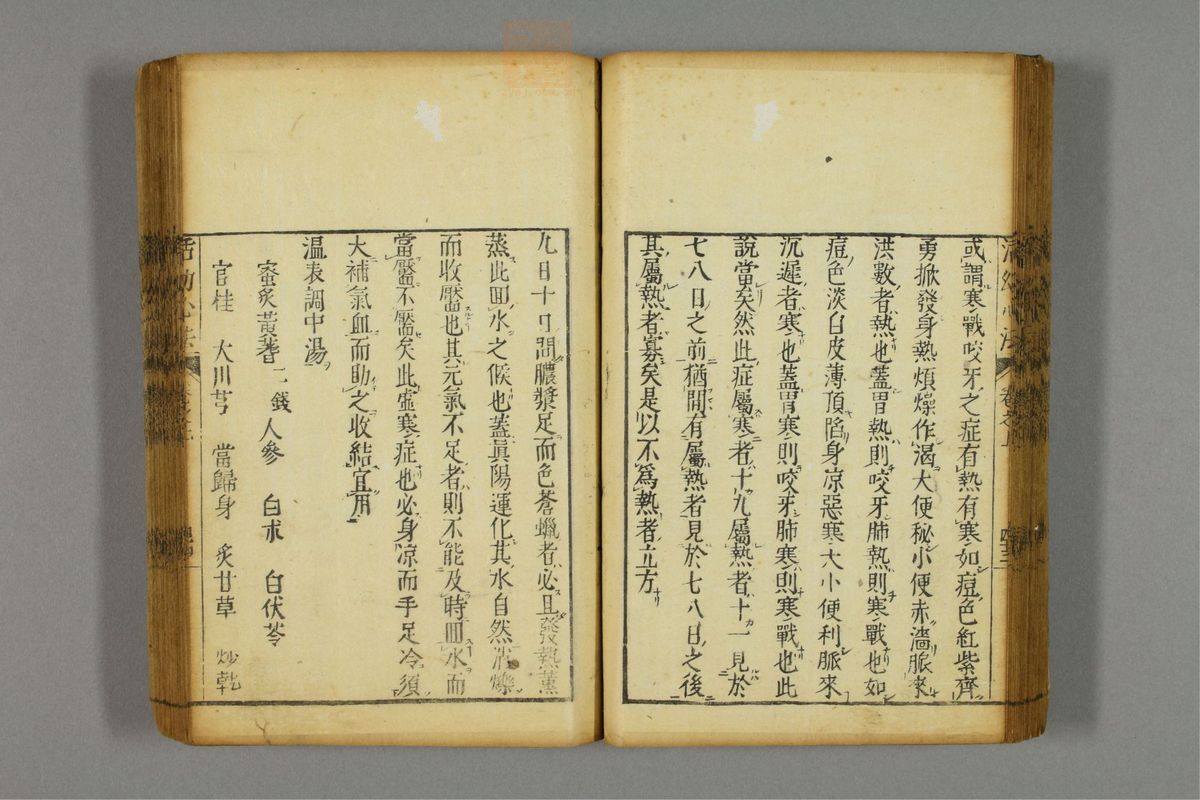 或謂寒戰咬牙之症有熱有寒如痘色紅紫齊
勇掀發身熱煩燥作渴大便秘小便赤濇脈來
洪數者熱也蓋胃熱則咬牙肺熱則寒戰也如
痘色淡白皮薄頂陷身凉惡寒大小便利脈來
沉遲者寒也蓋胃寒則咬牙肺寒則寒戰也此
說當矣然此症屬寒者十九屬熱者十一見於
七八日之前猶間有屬熱者見於七八日之後
其屬熱者寡矣是以不爲熱者立方
九日十日間膿漿足而色蒼蠟者必且發熱薰
蒸此回水之候也蓋眞陽運化其水自然消爍
而收靨也其元氣不足者則不能及時回水而
當靨不靨矣此虛寒症也必身凉而手足冷須
大補氣血而助之收結宜用
温表調中湯
蜜炙黃蓍二錢 人參 白朮 白伏苓
官桂 大川芎 當歸身 炙甘草 炒乾
活幼心法 卷之